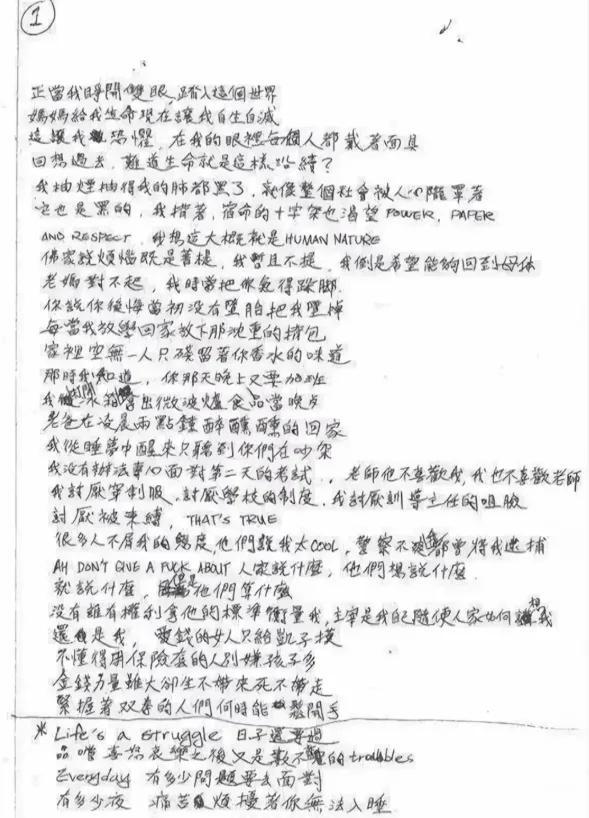 1
正當我睜開雙眼,踏入這個世界
媽媽給我生命現在讓我自生自滅
這讓我恐懼,在我的眼裡每個人都戴著面具
回想過去,難道生命就是這樣沿續?
我抽煙抽得我的肺都黑了,就像整個社會被人心籠罩著
它也是黑的,我揹著,宿命的十字架也渴望POWER, PAPER
AND RESPECT,我想這大概就是HUMAN NATURE
佛家說煩惱既是菩提,我暫且不提,我倒是希望能夠回到母体
老媽對不起,我時常把你氣得跺腳
你說你後悔當初沒有墮胎把我墮掉
每當我放學回家放下那沈重的揹包
家裡空無一人只殘留著你香水的味道
那時我知道,你那天晚上又要加班
我打開冰箱拿出微波爐食品當晚点
老爸在凌晨兩點鐘醉醺醺的回家
我從睡夢中醒來只聽到你們在吵架
我沒有辦法專心面對第二天的考試..,老師他不喜歡我,我也不喜歡老師
我討厭穿制服,討厭學校的制度,我討厭訓導主任的咀臉
討厭被束縛,THAT'S TRUE
很多人不屑我的態度,他們說我太COOL,警察不爽都曾將我逮捕
AH DON'T GIVE A FUCK ABOUT 人家說什麼,他們想說什麼
就說什麼,但是他們算什麼
沒有誰有權利拿他的標準衡量我,主宰是我自己隨便人家如何想我
還是我,愛錢的女人只給凱子摸
不懂得用保險套的人別嫌孩子多
金錢力量雖大卻生不帶來死不帶走
緊握著双拳的人們何時能鬆開手
* Life's a struggle 日子還要過
品嚐喜怒哀樂之後又是數不盡的troubles
Everyday 有多少問題要去面對
有多少夜 痛苦煩擾著你無法入睡